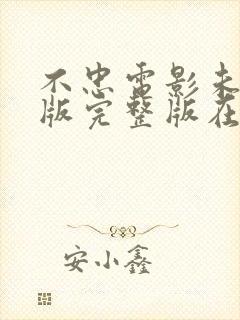 不忠电影未
版完整版在
安小鑫